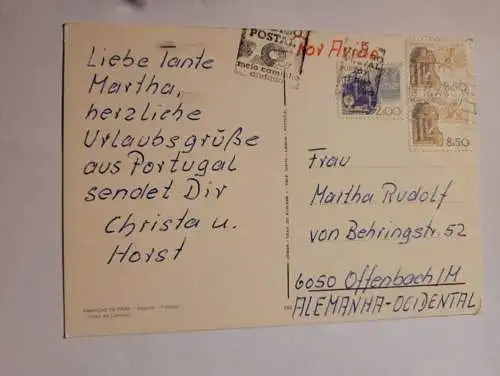 Liebe Tante
Martha,
herzliche
Urlaubsgrüße
aus Portugal
sendet Dir
Christa u.
Horst
POSTAL
meio caminho
andado
Por Avião
2.00
8.50
8.50
Frau
Martha Rudolf
von Behringstr. 52
6050 Offenbach/M
ALEMANHA-OCIDENTAL